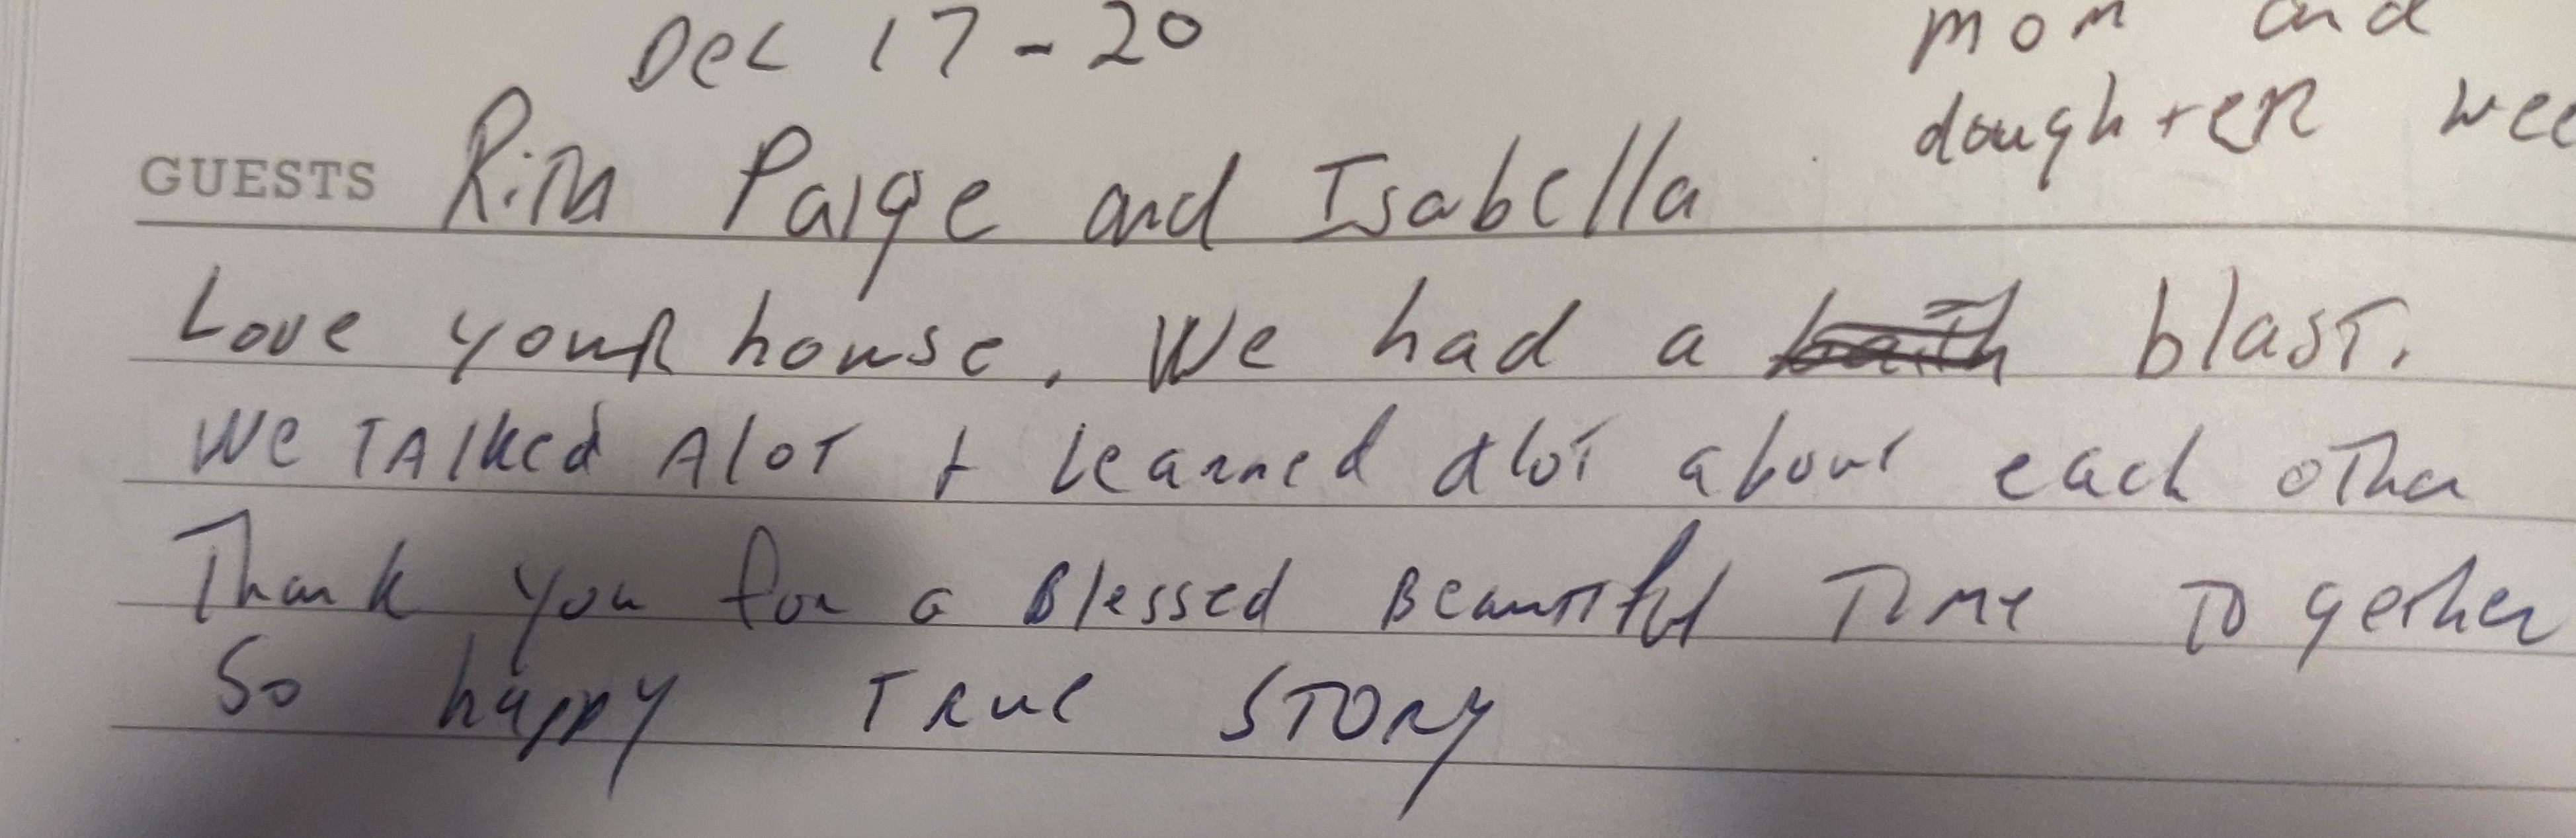 Dec 17-20
mom and
daughter wee
GUESTS Rita Paige and Isabella
Love your house. We had a blast.
We TAlked Alot + Learned alot about each other
Thank you for a Blessed Beautiful Time Together
So happy True STORy